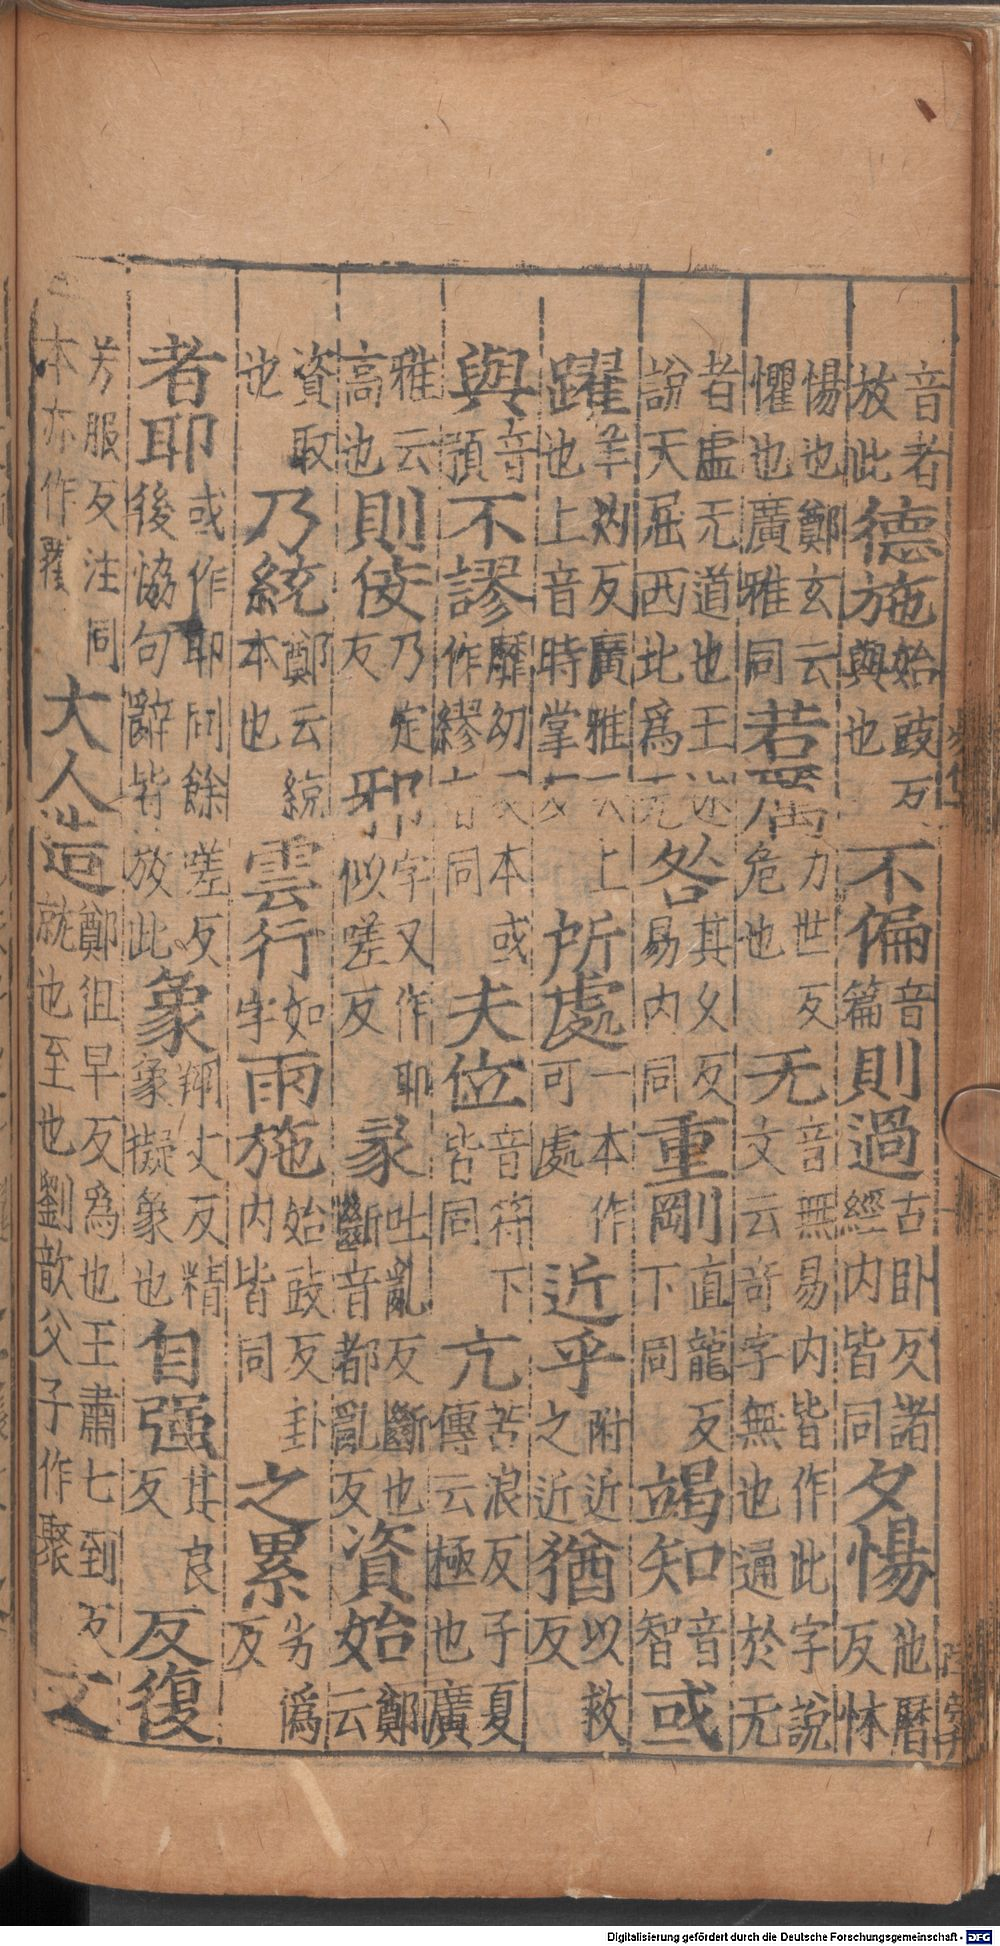 音者放此德施始豉反與也不偏音篇則過古卧反諸經内皆同夕惕他曆反怵
惕也鄭玄云懼也廣雅同若厲力世反危也无音無易内皆作此字說文云奇字無也通於无
者虛无道也王述說天屈西北爲无咎其久反易内同重剛直龍反下同竭知音智或
躍羊灼反廣雅云上也上音時掌反所處一本作可處近乎附近之近猶以救反
與音預不謬靡幼反本或作繆音同夫位音符下皆同亢苦浪反子夏傳云極也廣
雅云高也則佞乃定反邪字又作耶似嗟反彖吐亂反斷也斷音都亂反資始鄭云
資取也乃統鄭云統本也雲行如字雨施始豉反卦内皆同之累劣僞反
者耶或作耶同餘嗟反後協句辭皆放此象翔丈反精象擬象也自强其良反反復
芳服反注同本亦作覆大人造鄭徂早反爲也王肅七到反就也至也劉歆父子作聚文
Digitalisierung gefördert durch die Deutsche Forschungsgemeinschaft - DFG